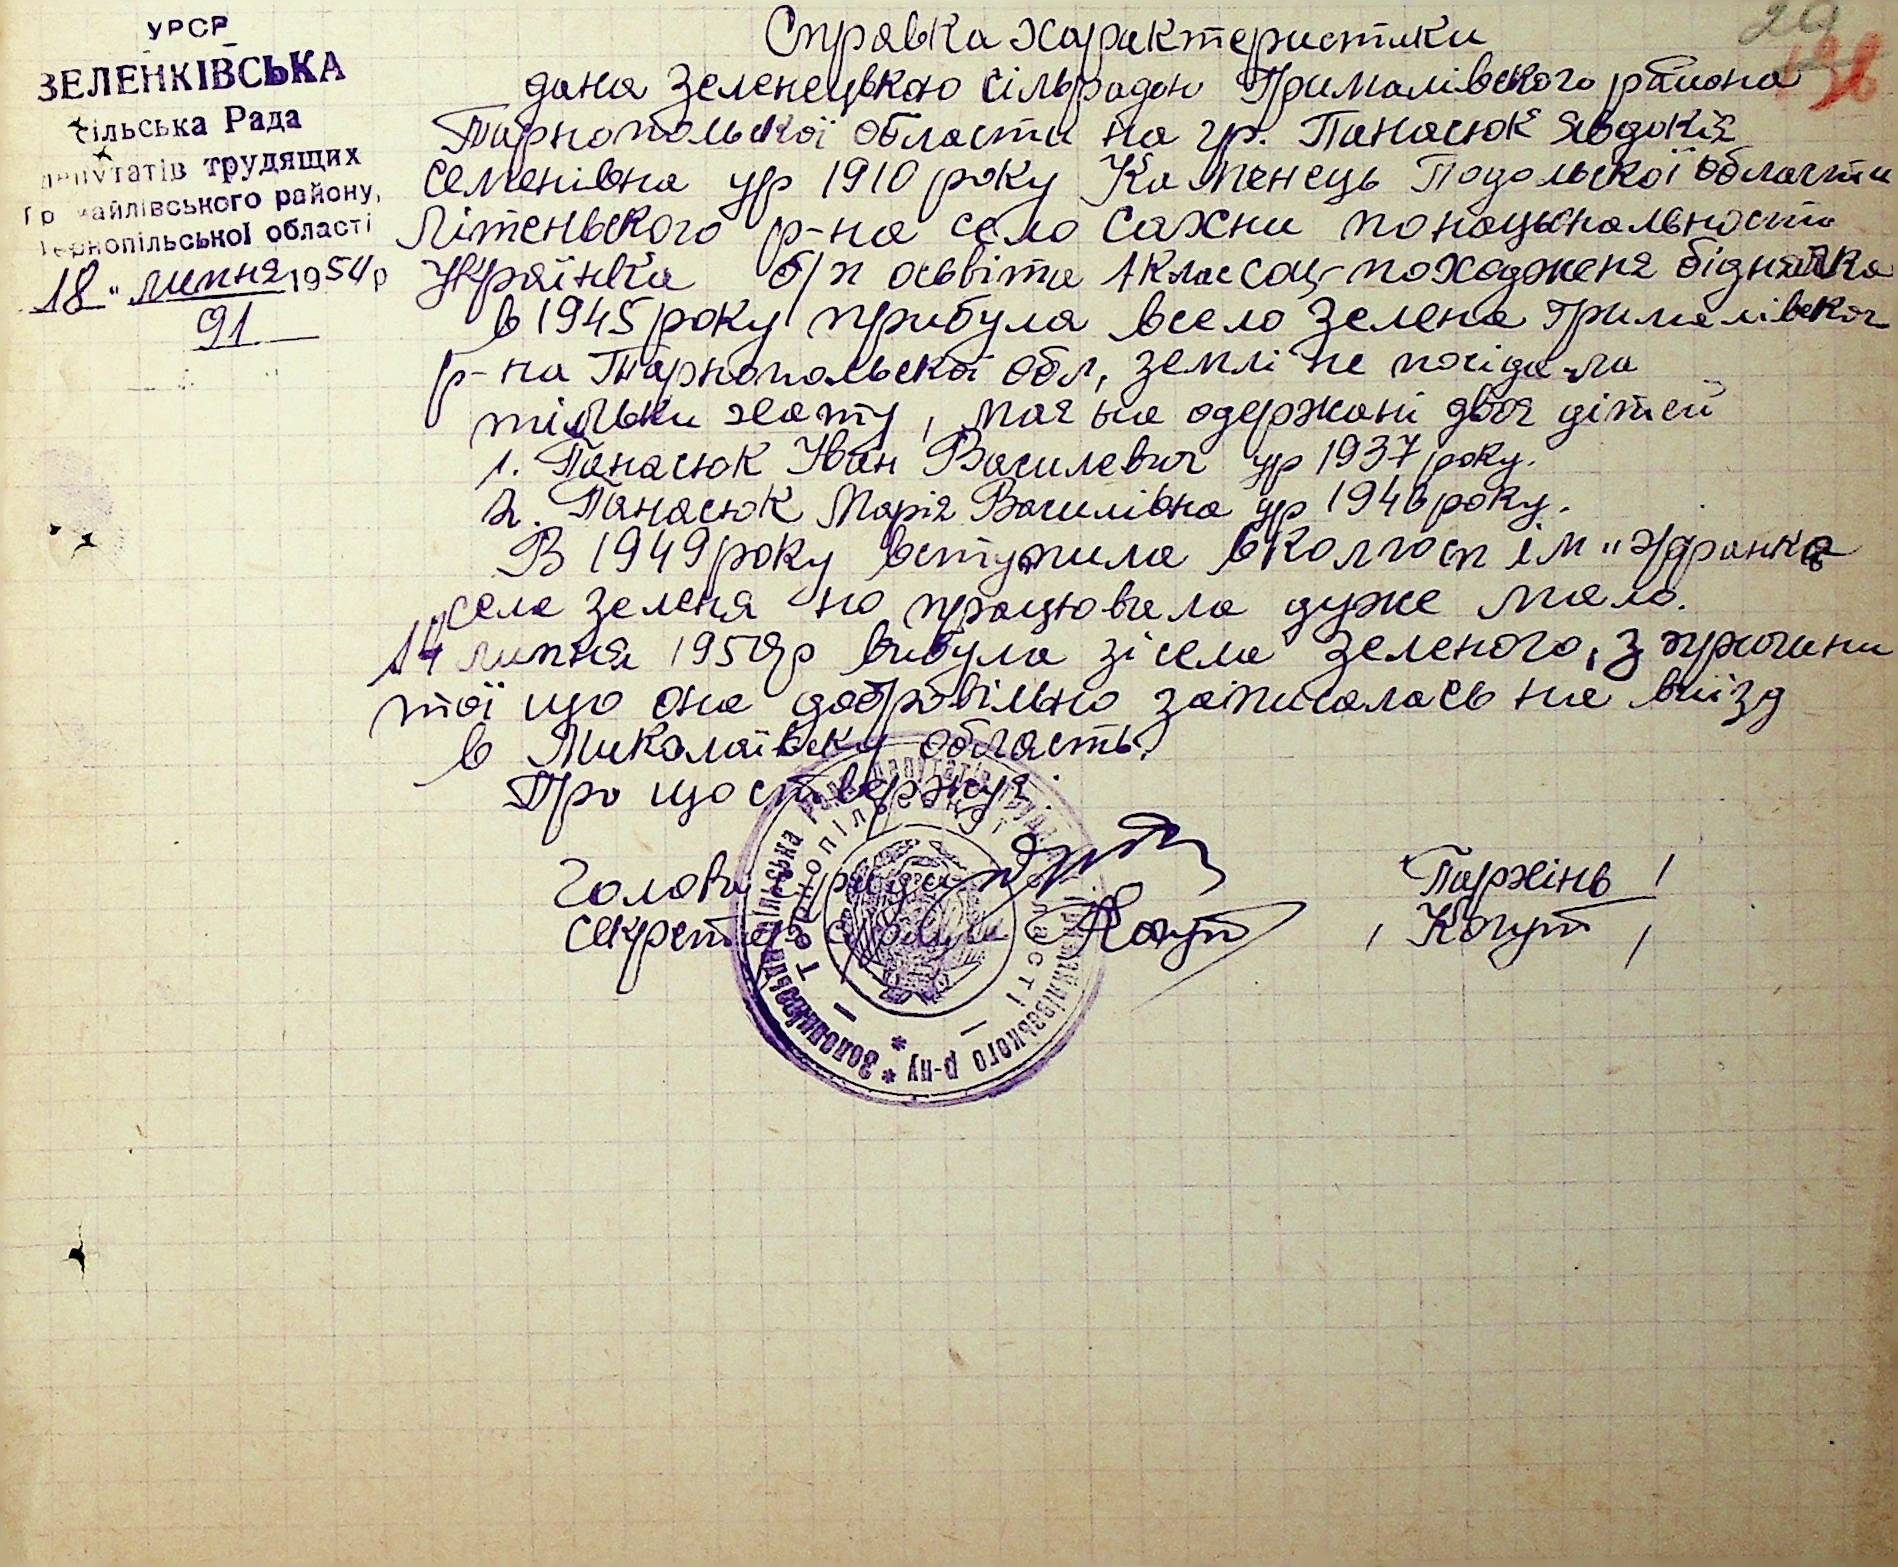 УРСР
ЗЕЛЕНКІВСЬКА
сільська Рада
депутатів трудящих
Гримайлівського району,
Тернопільської області
18 " липня 1954 р
91
29
Справка характеристики
дана Зеленецькою сільрадою Грималівского района
Тарнопольскої области на гр. Панасюк Явдокія
Семенівна ур 1910 року Каменець Подольскої области
Літеньского р-на село Сахни понацыональности
Українка б/п освіта 1 клас соц-походженя біднячка
в 1945 року прибула всело Зелена Грималівског
р-на Тарнопольскої обл, землі не посідала
тільки хату, має на одержані двоя дітей
1. Панасюк Іван Василевич ур 1937 року.
2. Панасюк Марія Василівна ур 1946 року.
В 1949 року вступила вколгосп ім "Франка
села зеленя но працювала дуже мало.
14 липня 1954р вибула зісела Зеленого, з причини
тої що она добровільно записалась на виїзд
в Миколаївску область.
Про що ствержує.
Голова с/ради Пархінь /
секретар с/ради Когут / Когут /
Тернопільської області
Гримайлівського р-ну